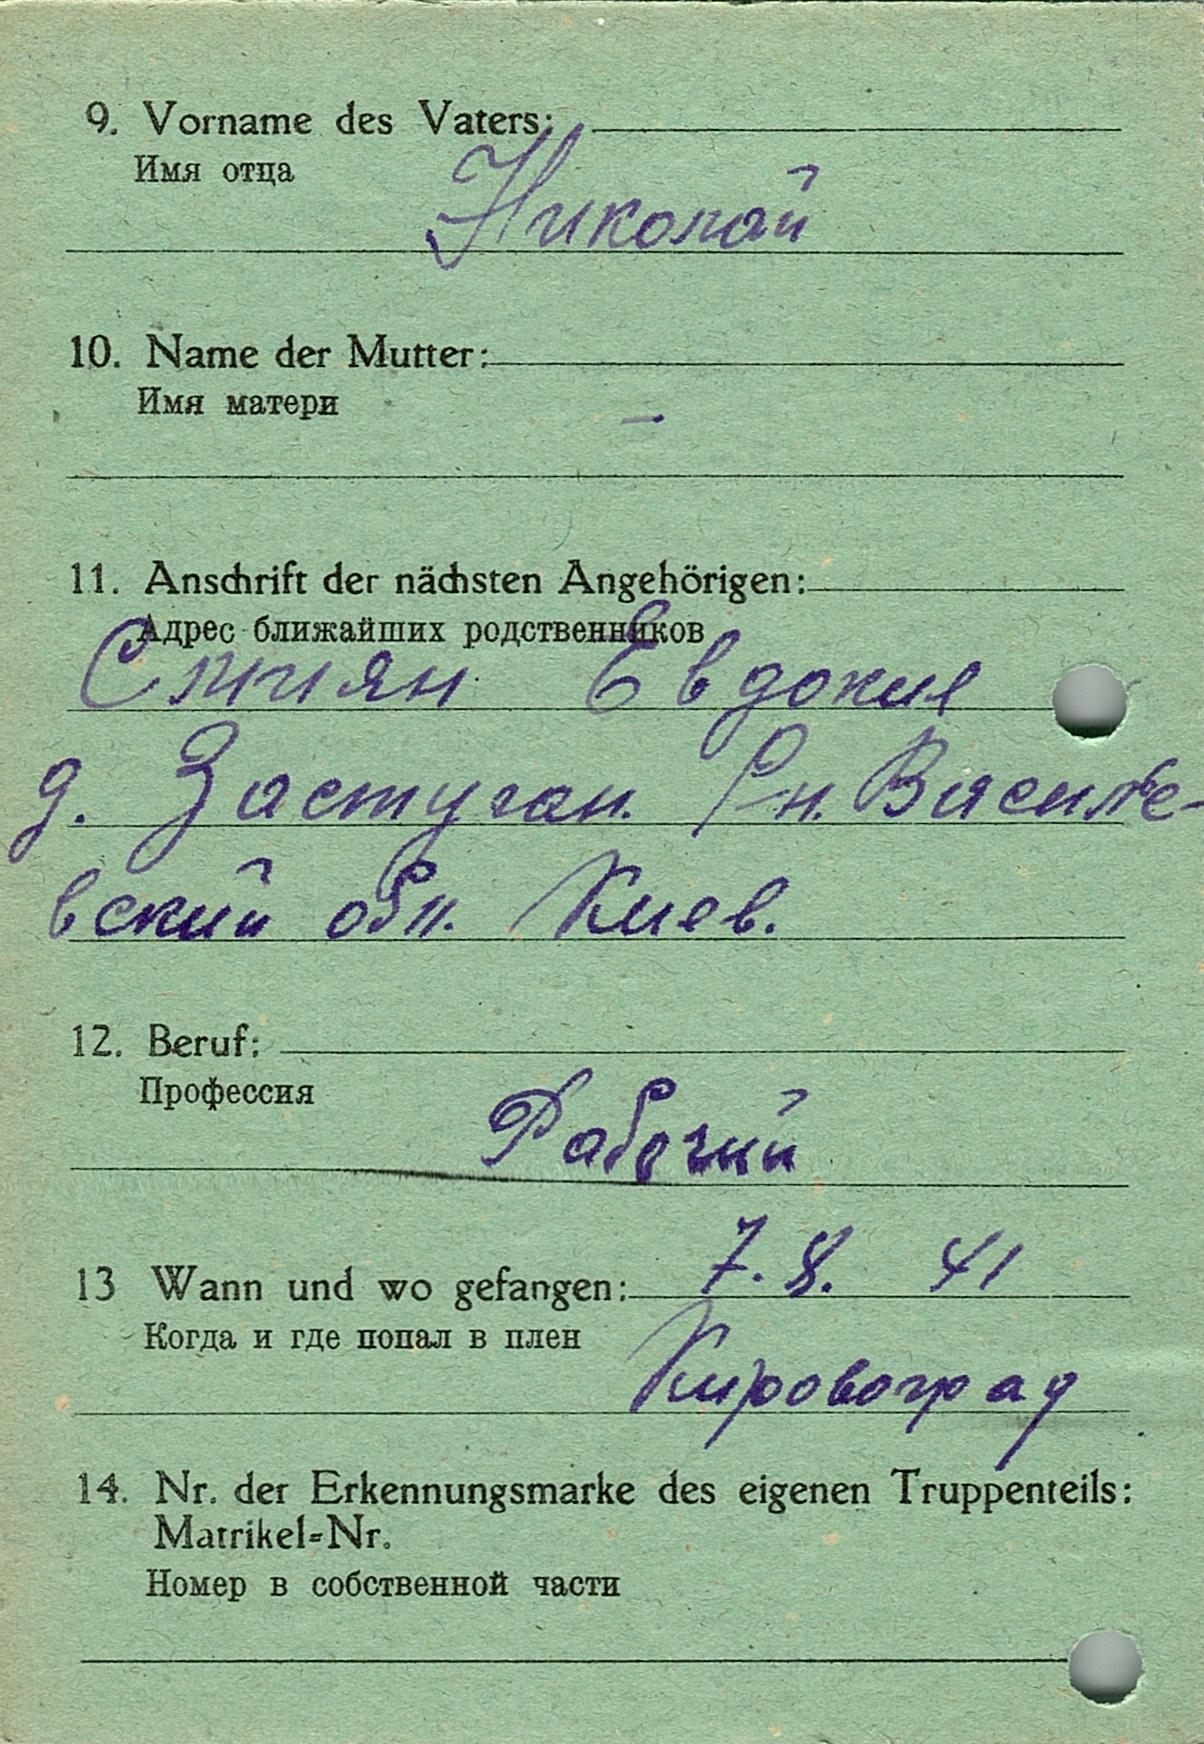 9. Vorname des Vaters:
Имя отца
Николай
10. Name der Mutter:
Имя матери
–
11. Anschrift der nächsten Angehörigen:
Адрес ближайших родственников
Евдокия
д. Застуган. Р-н. Василе-
вский обл. Киев.
12. Beruf:
Профессия
Рабочий
13 Wann und wo gefangen: 7. 8. 41
Когда и где попал в плен
Кировоград
14. Nr. der Erkennungsmarke des eigenen Truppenteils:
Matrikel=Nr.
Номер в собственной части